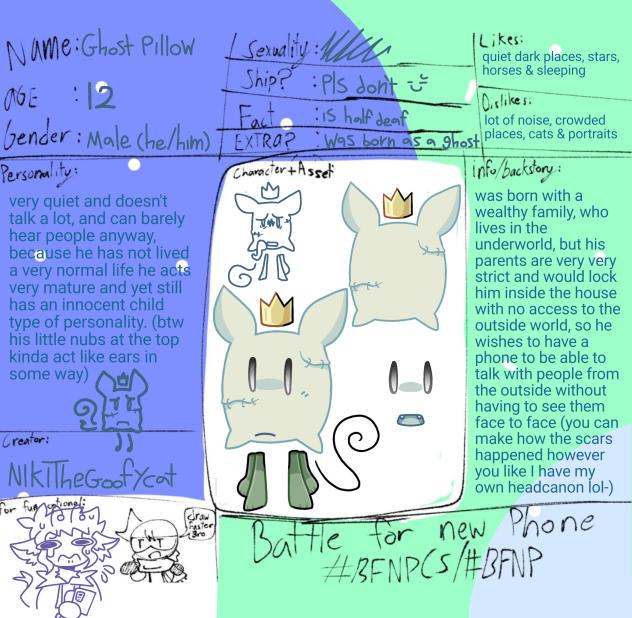 Name: Ghost Pillow
AGE : 12
Gender: Male (he/him)
Sexuality:
Ship? : Pls don't
Fact : is half deaf
EXTRA? : was born as a ghost
Likes:
quiet dark places, stars,
horses & sleeping
Dislikes:
lot of noise, crowded
places, cats & portraits
Personality:
very quiet and doesn't
talk a lot, and can barely
hear people anyway,
because he has not lived
a very normal life he acts
very mature and yet still
has an innocent child
type of personality. (btw
his little nubs at the top
kinda act like ears in
some way)
Character+Asset
Info/backstory:
was born with a
wealthy family, who
lives in the
underworld, but his
parents are very very
strict and would lock
him inside the house
with no access to the
outside world, so he
wishes to have a
phone to be able to
talk with people from
the outside without
having to see them
face to face (you can
make how the scars
happened however
you like I have my
own headcanon lol-)
Creator:
NIKITheGoofycat
For fun (optional:
draw
faster
Bro
Battle for new Phone
#BFNPCS/#BFNP